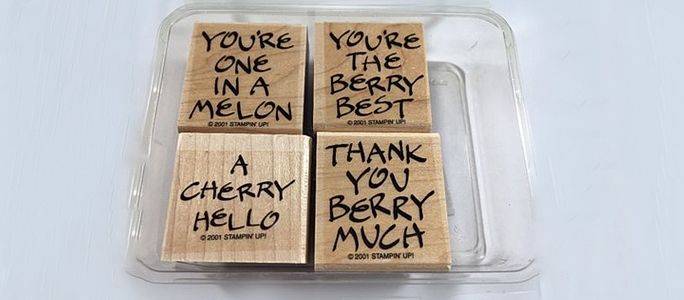 YOU'RE
ONE
IN A
MELON
© 2001 STAMPIN' UP!
YOU'RE
THE
BERRY
BEST
© 2001 STAMPIN' UP!
A
CHERRY
HELLO
© 2001 STAMPIN' UP!
THANK
YOU
BERRY
MUCH
© 2001 STAMPIN' UP!